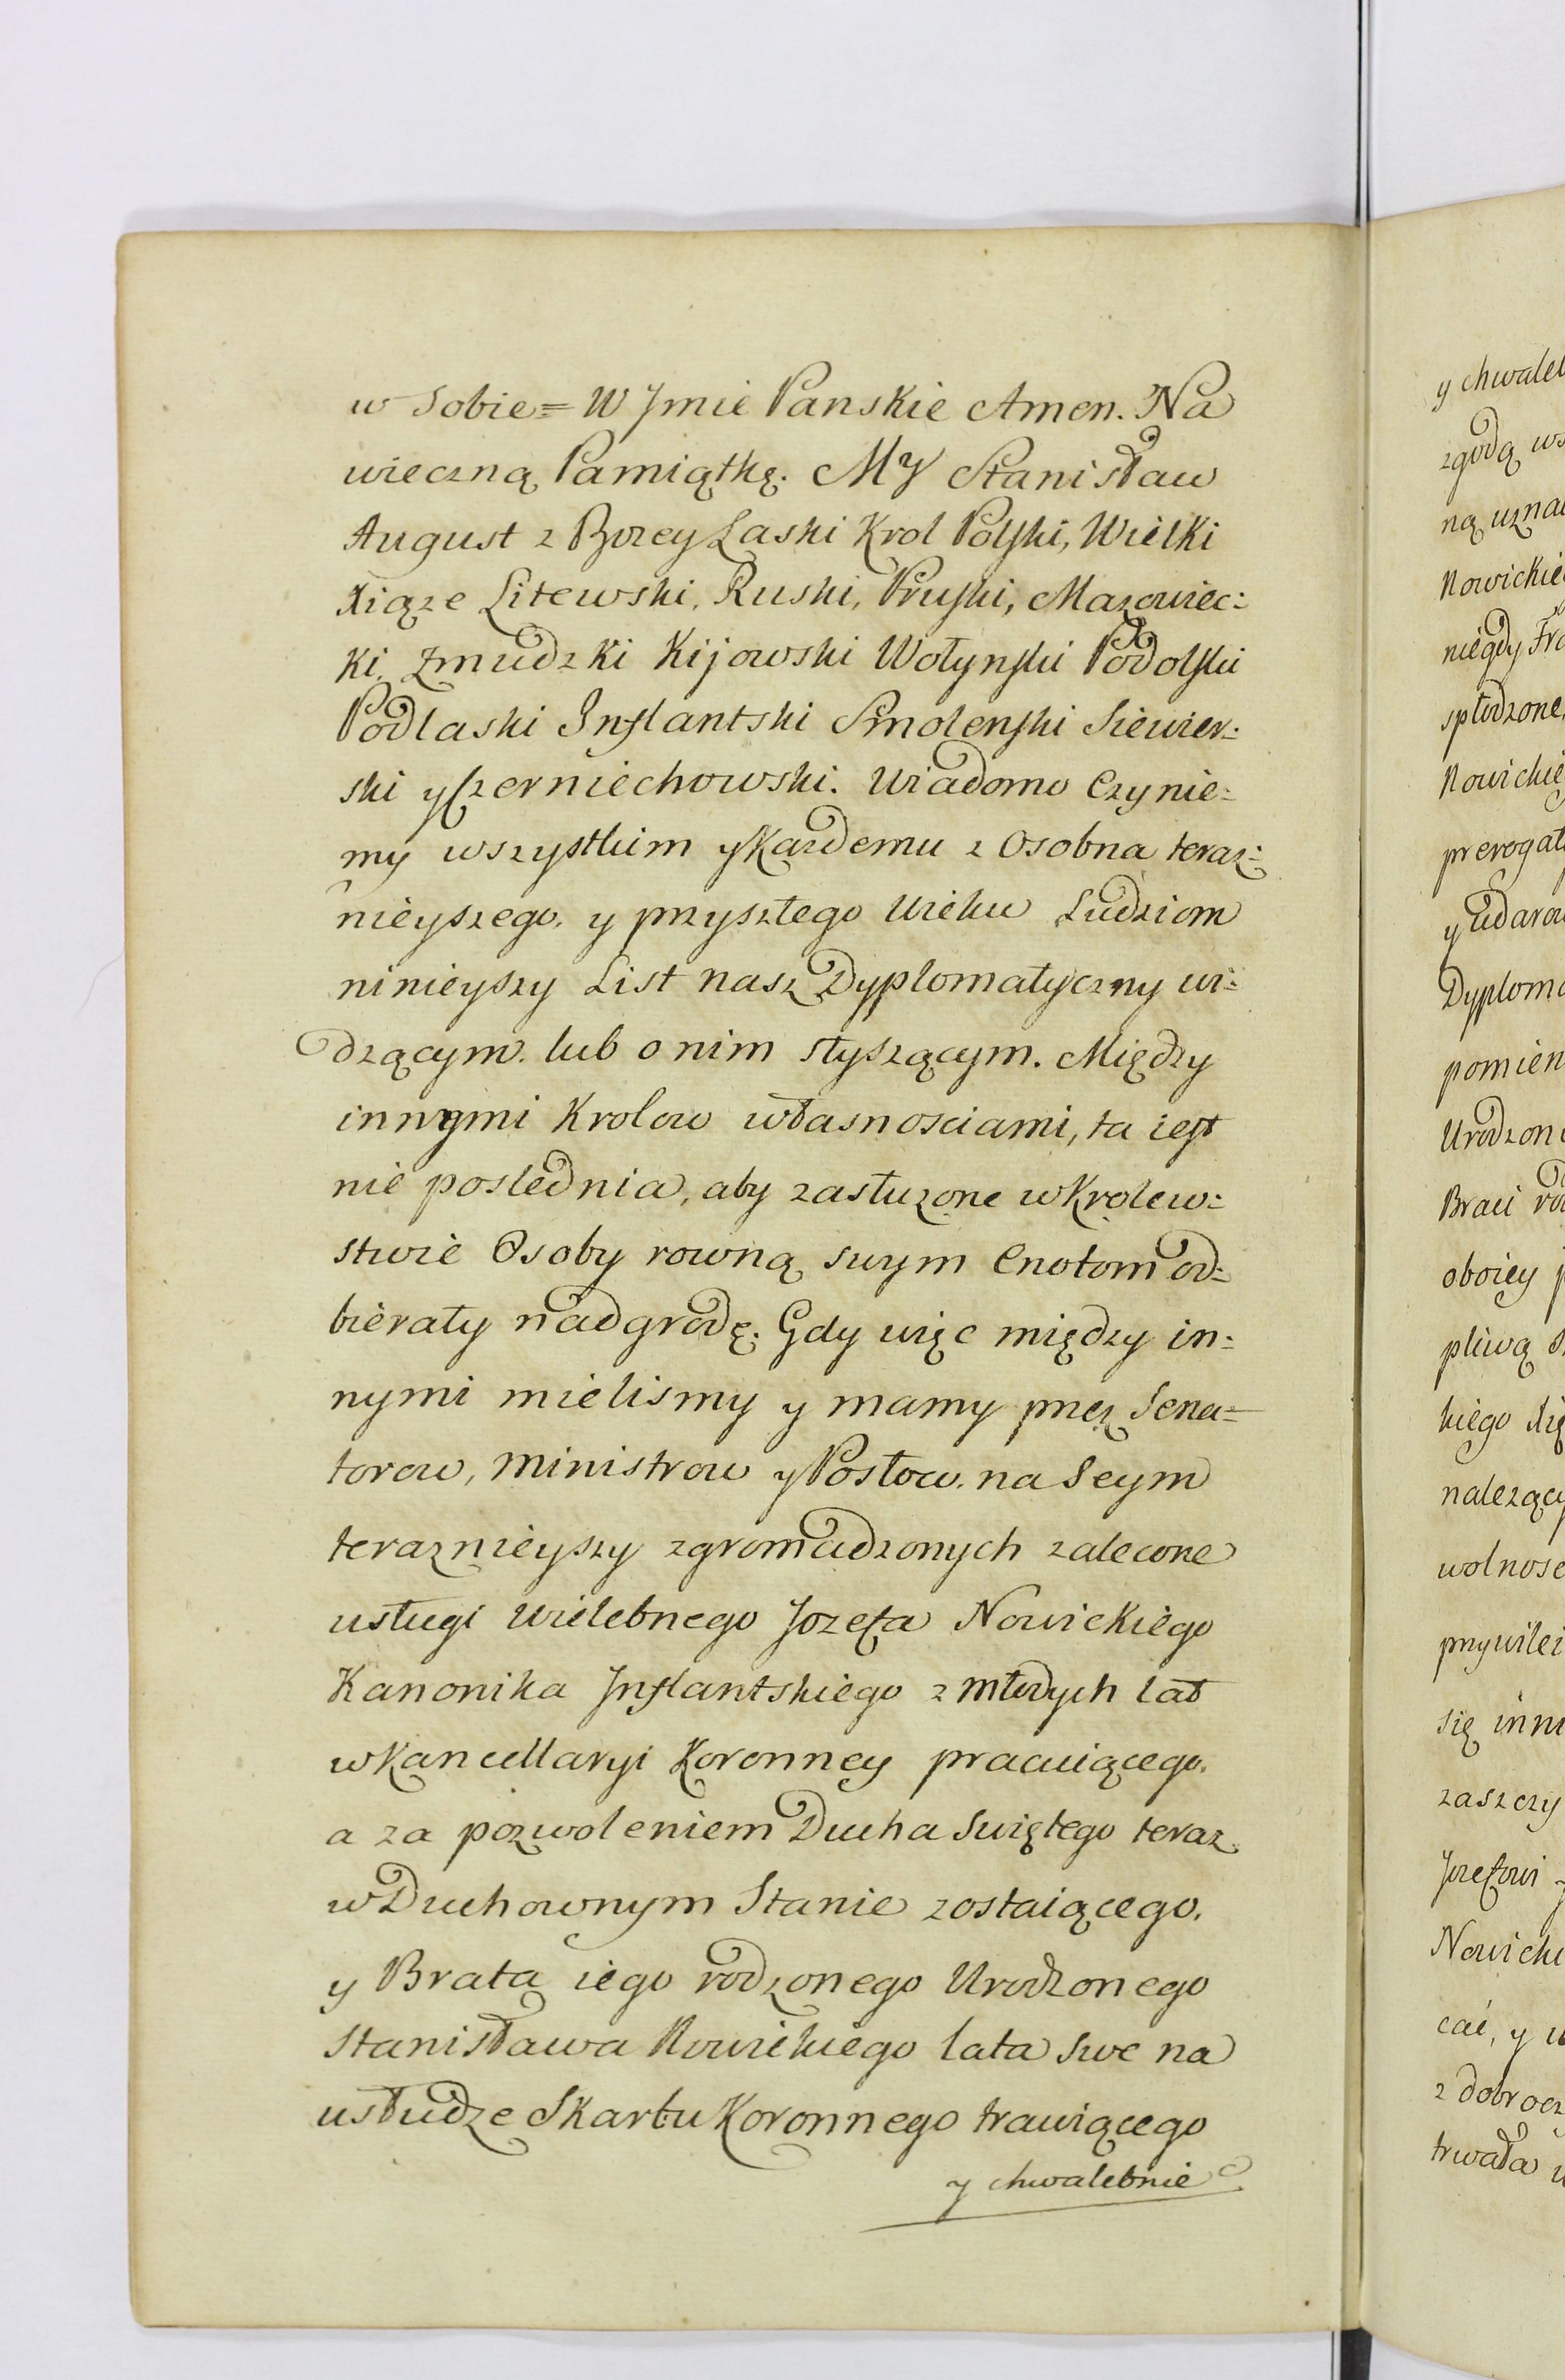 w Sobie= W Jmie Panskie Amen. Na
wieczną Pamiątkę. My Stanisław
August z Bozey Laski Krol Polski, Wielki
Xiąze Litewski, Ruski, Pruski, Mazowiec:
ki, Zmudzki Kijowski Wołynski Podolski
Podlaski Inflantski Smolenski Siewier:
ski y Czerniechowski. Wiadomo Czynie:
my wszystkim y Kazdemu z Osobna teraz:
nieyszego, y przyszłego Wieku Ludziom
ninieyszy List nasz Dyplomatyczny wi:
dzącym lub o nim słyszącym. Między
innymi Krolow własnosciami, ta iest
nie poslednia, aby zasłuzone w Krolew:
stwie Osoby rowną swym Cnotom od:
bierały nadgrodę. Gdy więc między in:
nymi mielismy y mamy przez Sena=
torow, Ministrow y Posłow na Seym
teraznieyszy zgromadzonych zalecone
usługi Wielebnego Jozefa Nowickiego
Kanonika Jnflantskiego z młodych lat
w Kancellaryi Koronney pracuiącego,
a za pozwoleniem Ducha Swiętego teraz
w Duchownym Stanie zostaiącego,
y Brata iego rodzonego Urodzonego
Stanisława Nowickiego lata swe na
usłudze Skarbu Koronnego trawiącego
y chwalebnie
y chwaleb
zgodą ws
ną uznal
Nowickie
niegdy Fra
spłodzone,
Nowickie
prerogat
y udarow
Dyploma
pomien
Urodzon
Braci rod
oboiey
pliwą
kiego Xię
nalezący
wolnosc
przywilei
się inni
zaszczy
Jozefowi
Nowicki
cać, y w
z dobrocz
trwała